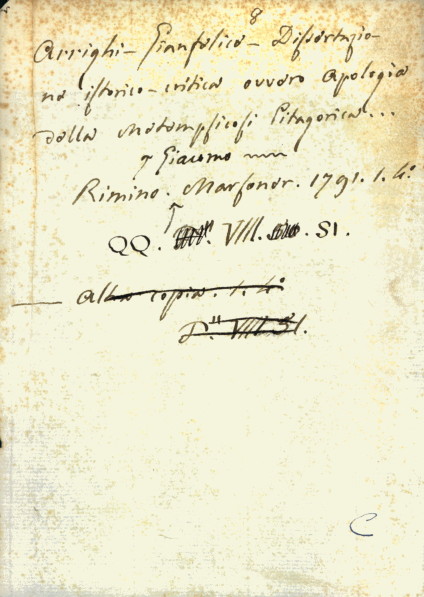 8
Arrighi - Gianfelice - Dissertazio-
ne istorico-critica ovvero Apologia
della Metempsicosi Pitagorica...
Giacomo
Rimino. Marsoner. 1791. 1. 4.º
QQ. VIII. 51.
Altra copia. 1. 4.º
D. VIII. 51.
C